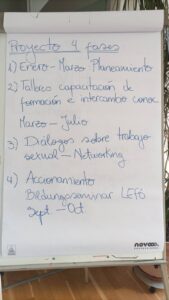 Proyecto 4 fases
1) Enero - Marzo Planeamiento
2) Talleres capacitación de
formación e intercambio conoc.
Marzo - Julio
3) Diálogos sobre trabajo
sexual - Networking
4) Accionamiento
Bildungsseminar LEFÖ
Sept. - Oct